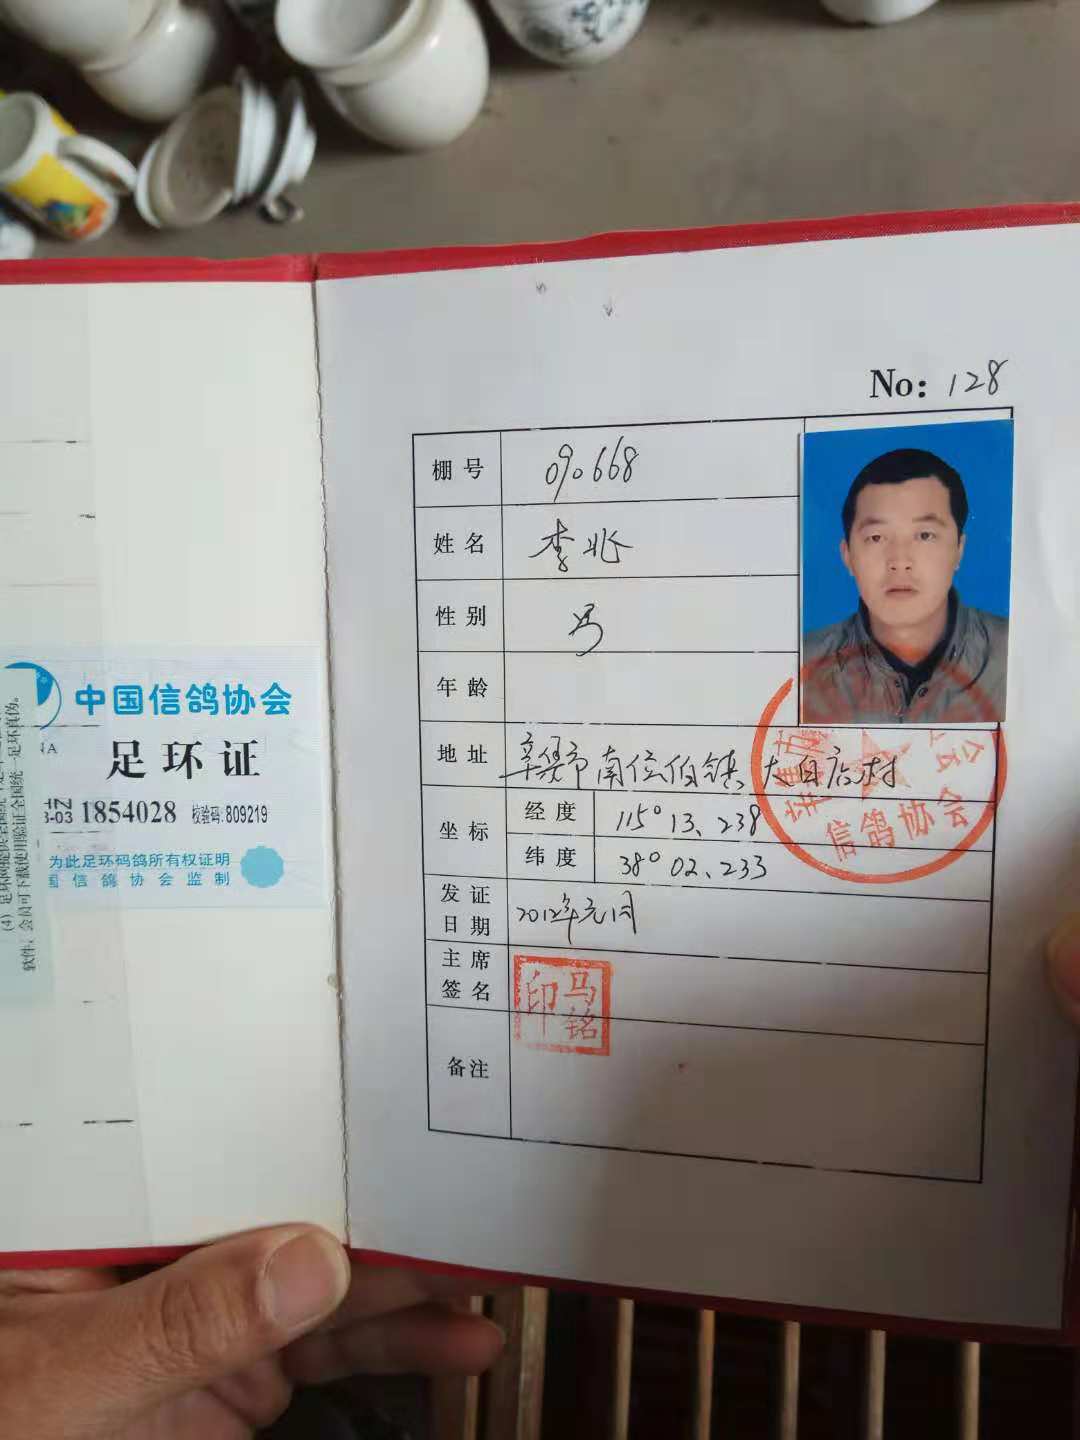 中国信鸽协会
足环证
1854028 校验码:809219
为此足环码鸽所有权证明
国信鸽协会监制
(4)
软件,会员可下载使用验证全国统一足环真伪。
No: 128
棚号 090668
姓名 李兆
性别 男
年龄
地址 辛集市南位伯镇大白店村
坐标 经度 115° 13、238
纬度 38° 02、233
发证日期 2012年元月
主席签名 马铭印
备注
信鸽协会